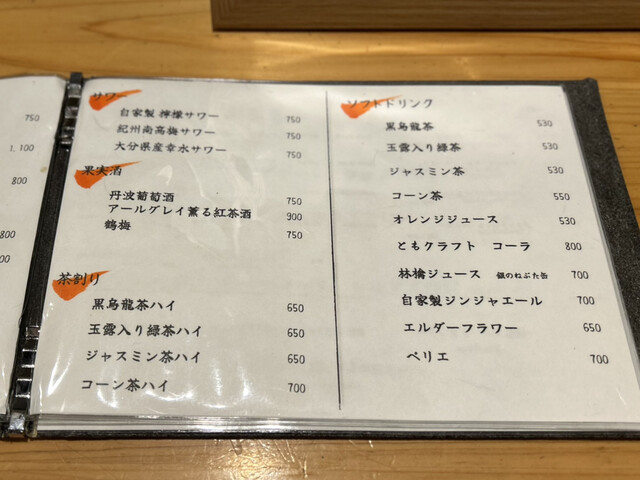 750
1,100
800
800
850
サワー
自家製 檸檬サワー 750
紀州南高梅サワー 750
大分県産幸水サワー 750
果実酒
丹波葡萄酒 750
アールグレイ薫る紅茶酒 900
鶴梅 750
茶割り
黒烏龍茶ハイ 650
玉露入り緑茶ハイ 650
ジャスミン茶ハイ 650
コーン茶ハイ 700
ソフトドリンク
黒烏龍茶 530
玉露入り緑茶 530
ジャスミン茶 530
コーン茶 550
オレンジジュース 530
ともクラフト コーラ 800
林檎ジュース 銀のねぶた缶 700
自家製ジンジャエール 700
エルダーフラワー 650
ペリエ 700